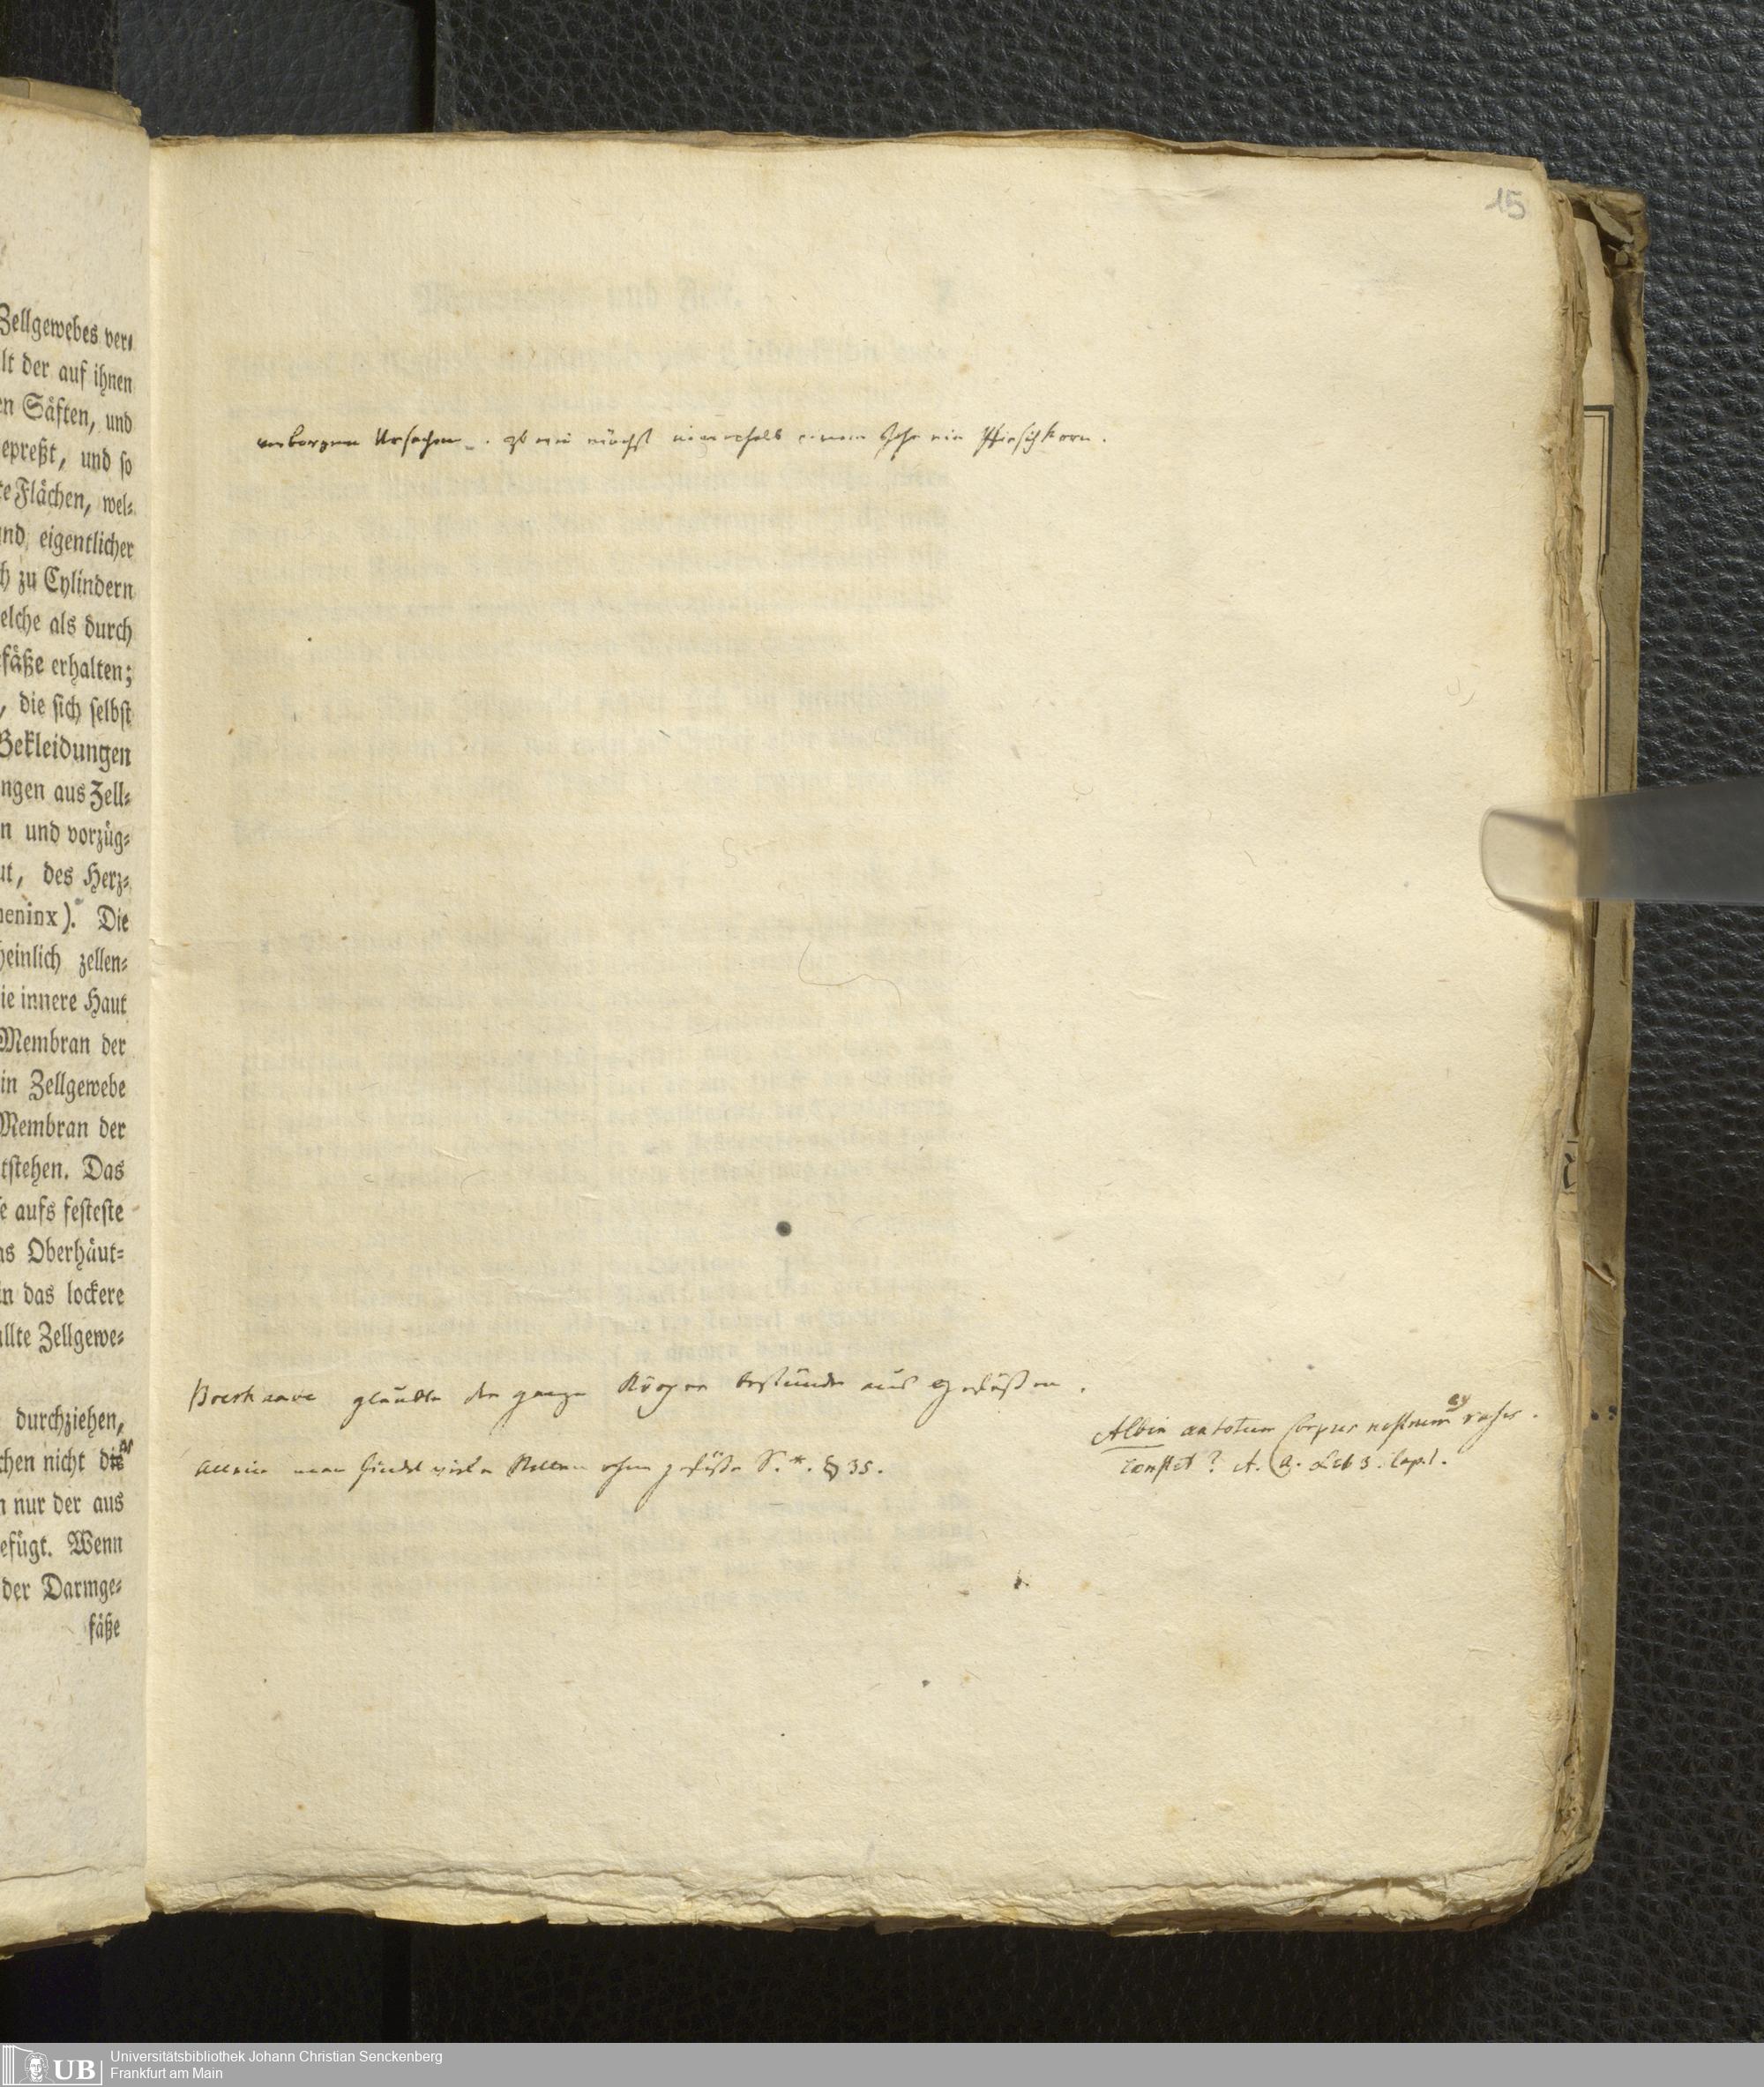 15
Zellgewebes ver⸗
lt der auf ihnen
en Säften, und
epreßt, und so
te Flächen, wel⸗
und eigentlicher
h zu Cylindern
elche als durch
fäße erhalten;
, die sich selbst
Bekleidungen
ngen aus Zell⸗
n und vorzüg⸗
ut, des Herz⸗
meninx). Die
heinlich zellen⸗
ie innere Haut
Membran der
in Zellgewebe
Membran der
tstehen. Das
e aufs festeste
as Oberhäut⸗
in das lockere
üllte Zellgewe⸗
durchziehen,
chen nicht die
n nur der aus
efügt. Wenn
der Darmge⸗
fäße
verborgene Ursachen . zb wächst innerhalb einem Jahr ein Hirschhorn.
Boerhaave glaubte der ganze Körper bestünde aus gefäßen.
allein man findet viele Stellen ohne gefäße S.*. § 35.
Albin an totum corpus nostrum ex vasis
constet? A. a. Lib 3. Cap. 1.
UB
Universitätsbibliothek Johann Christian Senckenberg
Frankfurt am Main